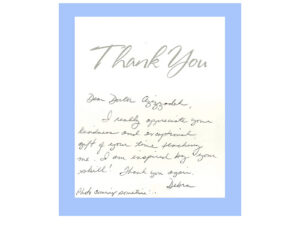 Thank You
Dear Doctor Azizzadeh,
I really appreciate your
kindness and exceptional
gift of your time teaching
me. I am inspired by your
skill! Thank you again.
Debra